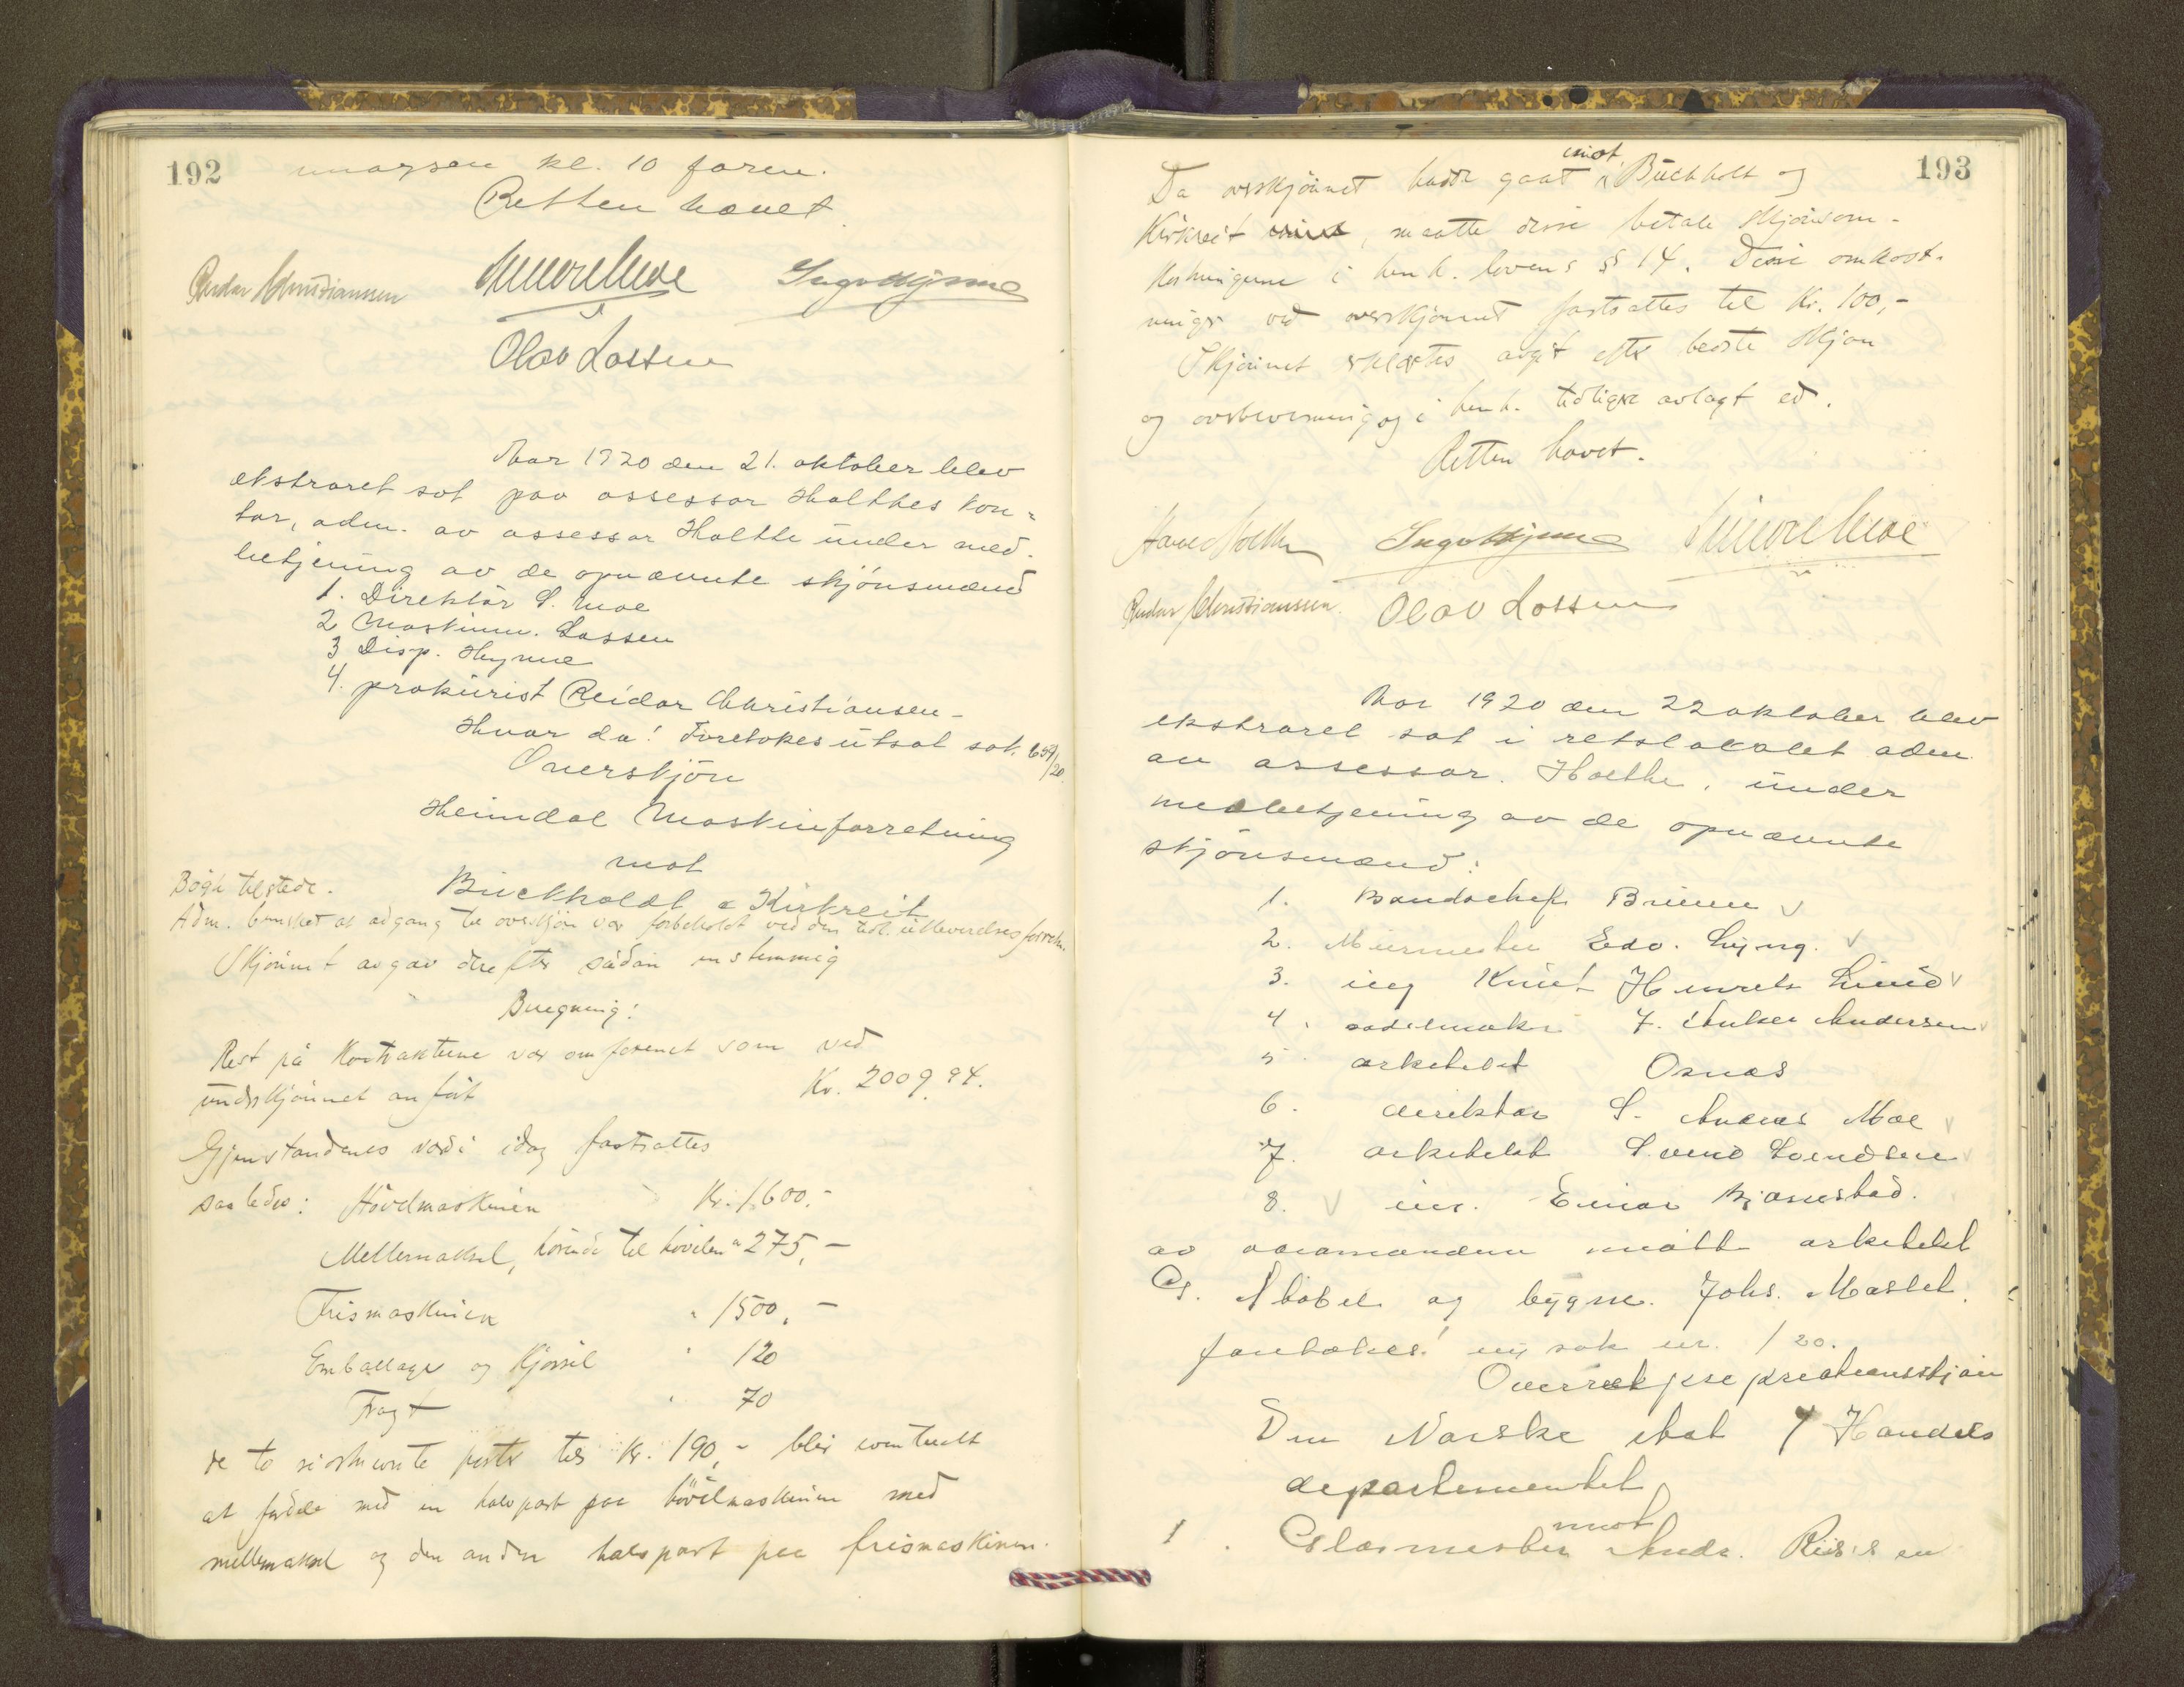 192
morgen kl. 10 form.
Retten hævet
Reidar Christiansen
Olav Lossen
Aar 1920 den 21. oktober blev
ekstraret sat paa assessor Holthes kon=
tor, adm. av assessor Holthe under med-
betjening av de opnævnte skjönsmænd
1. Direktör S. Moe
2 Maskinm. Lossen
3 Disp. Hymne
4. prokurist Reidar Christiansen -
Hvor da! Foretokes utsat sak. 659/20
Overskjön
Heimdal Maskinforretning
mot
Buckholdt & Kirkreit
Bögh tilstede.
Adm. bemerket at adgang til overskjön var forbeholdt ved den tidl. utleverelsesforretn.
Skjönnet avgav derefter sådan enstemmig
Beregning:
Rest på Kontraktene var omforenet som ved
underskjönnet anført Kr. 2009.94.
Gjenstandenes værdi idag fastsattes
saaledes: Hövelmaskinen Kr. 1.600.-
Mellemaksel, hörende til hövelen " 275,-
Fresmaskinen " 1500,-
Emballage og Kjörsel " 120
Fragt " 70
de to sidstnevnte poster tils. Kr. 190,- blir eventuelt
at fordele med en halvpart paa hövelmaskinen med
mellemaksel og den anden halvpart paa fresmaskinen.
193
Da overskjönnet hadde gaat imot Buckholt og
Kirkreit, maatte disse betale skjönsom-
kostningerne i henh. lovens §§ 14. Disse omkost-
ninger ved overskjönnet fastsattes til Kr. 100,-
Skjönnet erklærtes avgit efter bedste skjön
og overbevisning og i henh. tidligere avlagt ed.
Retten hævet.
Reidar Christiansen. Olav Lossen
Aar 1920 den 22 oktober blev
ekstraret sat i retslokalet adm.
av assessor Holthe, under
medbetjening av de opnævnte
skjönsmænd:
1. Bandachef Bruun v
2. Murmester Edv. Ljyng. v
3. ing Knut Henrik Lund v
4. sadelmaker J. Anker Andersen v
5 arkitekt Osnes
6. direktör S. Andreas Moe v
7. arkitekt Svend Svendsen v
8. v ing. Einar Bjannestad.
av varamændene mötte arkitekt
G. Stabel og bygm. Johs. Maslet.
foretokes! ny sak nr. /20.
Overrekspropriationsskjön
Den Norske stat v/ Handels
departementet
mot
1. Glasmester Andr. Riis's en